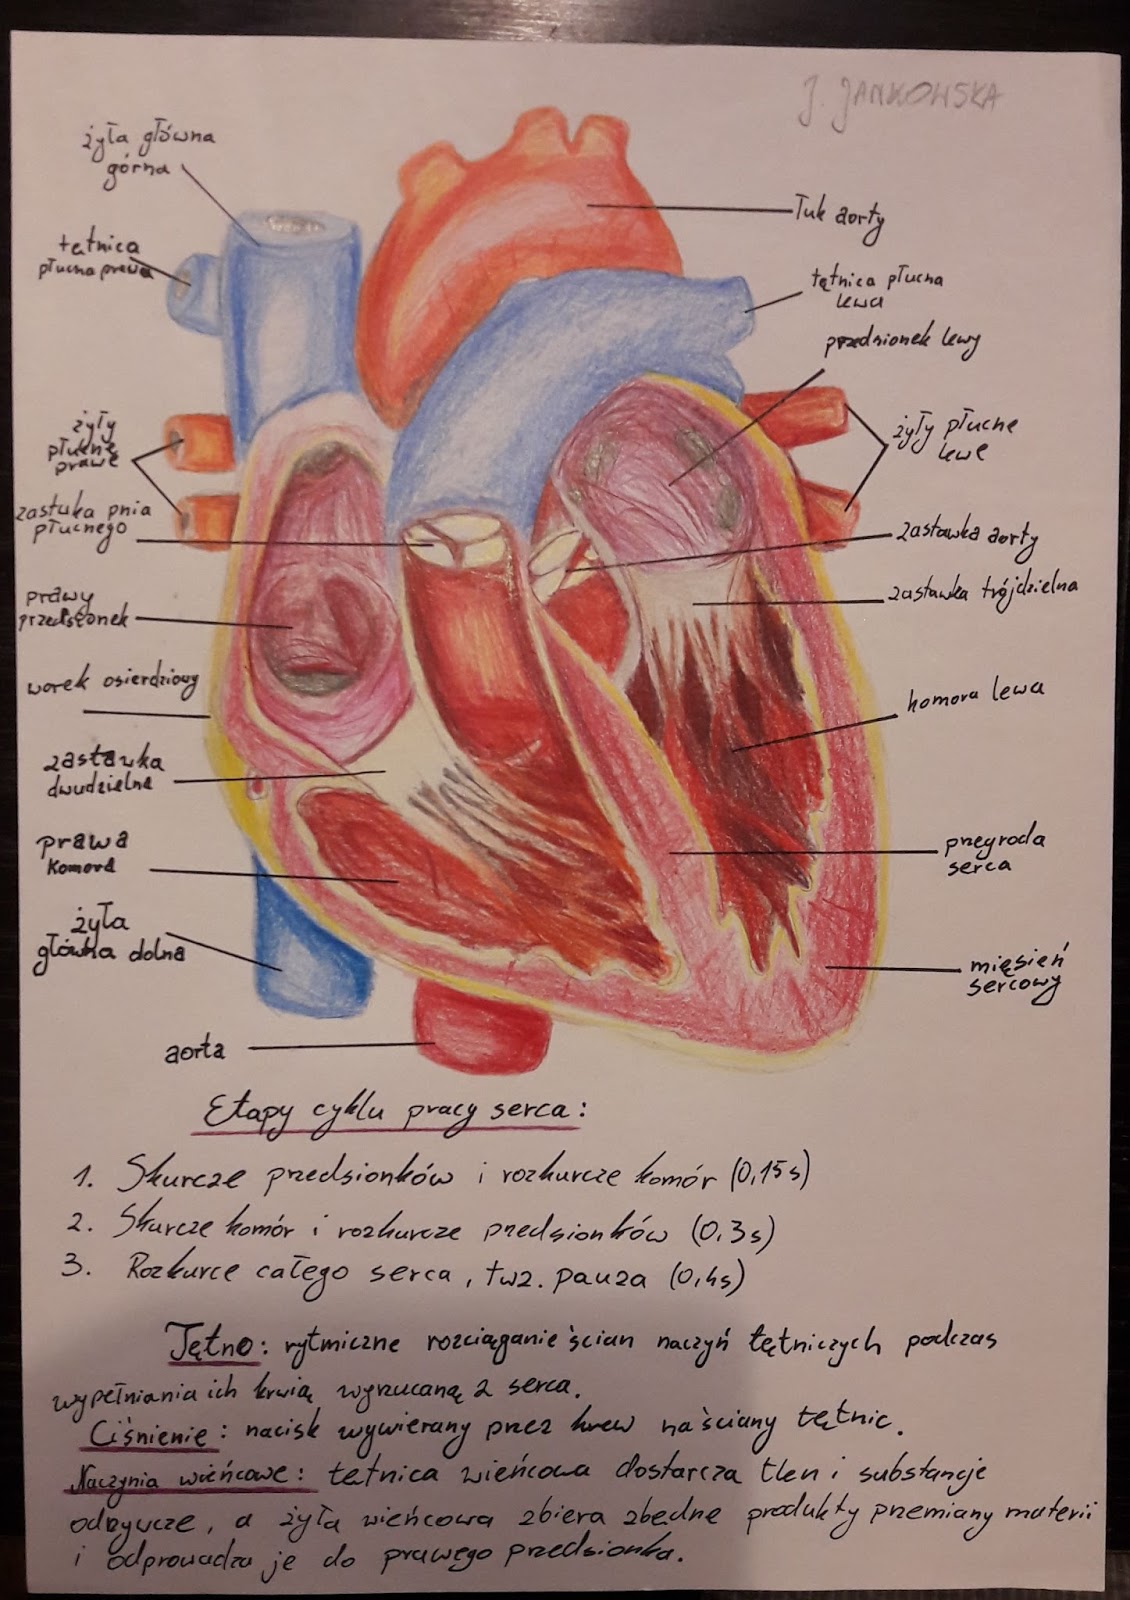 J. JANKOWSKA
żyła główna
górna
tętnica
płucna prawa
żyły
płucne
prawe
zastwka pnia
płucnego
prawy
przedsionek
worek osierdziowy
zastawka
dwudzielna
prawa
komora
żyła
główna dolna
aorta
łuk aorty
tętnica płucna
lewa
przedsionek lewy
żyły płucne
lewe
zastawka aorty
zastawka trójdzielna
komora lewa
przegroda
serca
mięsień
sercowy
Etapy cyklu pracy serca:
1. Skurcze przedsionków i rozkurcze komór (0,15s)
2. Skurcze komór i rozkurcze przedsionków (0,3s)
3. Rozkurcze całego serca, twz. pauza (0,4s)
Tętno: rytmiczne rozciąganie ścian naczyń tętniczych podczas
wypełniania ich krwią wyrzucaną z serca.
Ciśnienie: nacisk wywierany przez krew na ściany tętnic.
Naczynia wieńcowe: tętnica wieńcowa dostarcza tlen i substancje
odżywcze, a żyła wieńcowa zbiera zbędne produkty przemiany materii
i odprowadza je do prawego przedsionka.